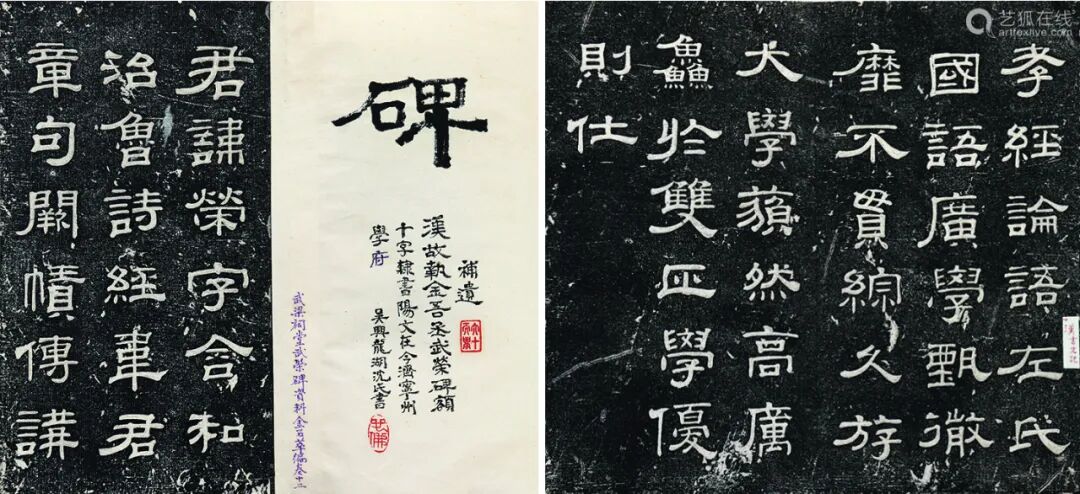 碑
補遺
漢故執金吾丞武榮碑額
十字隸書陽文在今濟寧州
學府
吳興龍湖沈氏書
武梁祠堂武榮碑資料金石萃編卷十二
君諱榮字含和
治魯詩經韋君
章句闕幘傳講
孝經論語左氏
國語廣學甄徹
靡不貫綜久斿
大學藐然高厲
鱻於雙匹學優
則仕
艺狐在线
artfoxlive.com